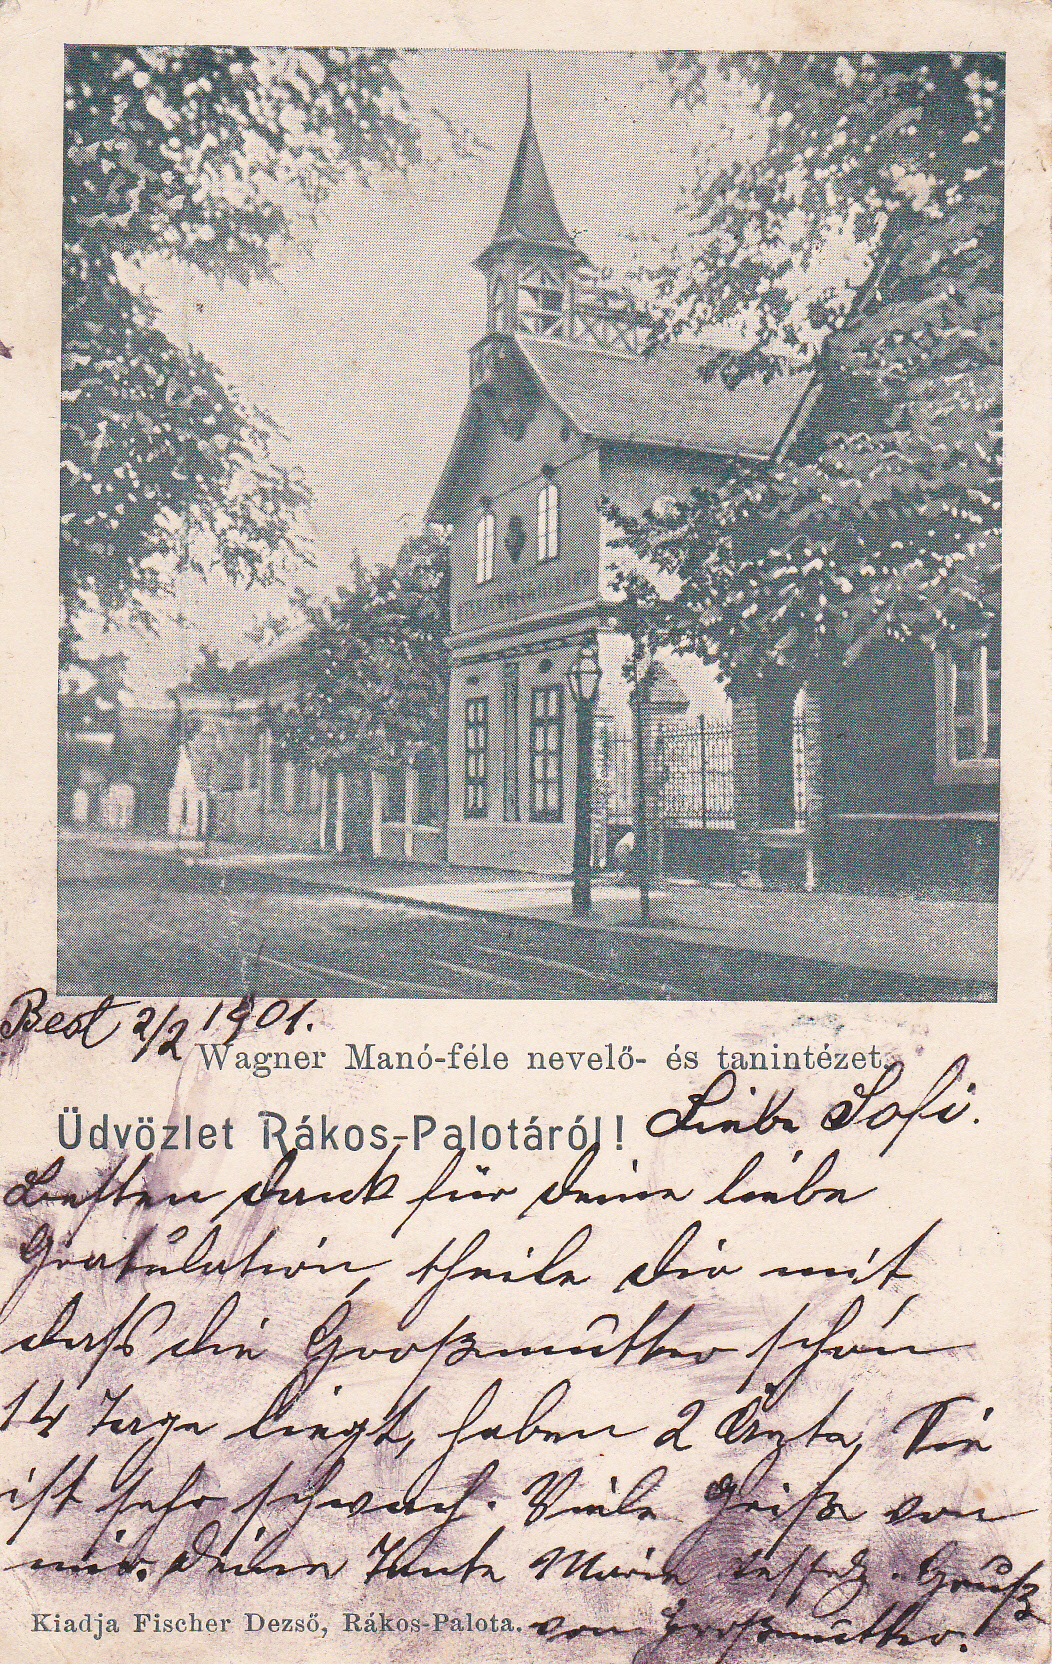 Best 2/2 1901.
Wagner Manó-féle nevelő- és tanintézet.
Üdvözlet Rákos-Palotáról!
Liebe Sofi.
Besten dank für deine liebe
Gratulation, theile dir mit,
daß die Großmutter schon
14 Tage liegt, haben 2 Ärzte, Sie
ist sehr schwach. Viele Grüße von
mir. deine Tante Marie Gruß
Kiadja Fischer Dezső, Rákos-Palota.
von Großmutter.